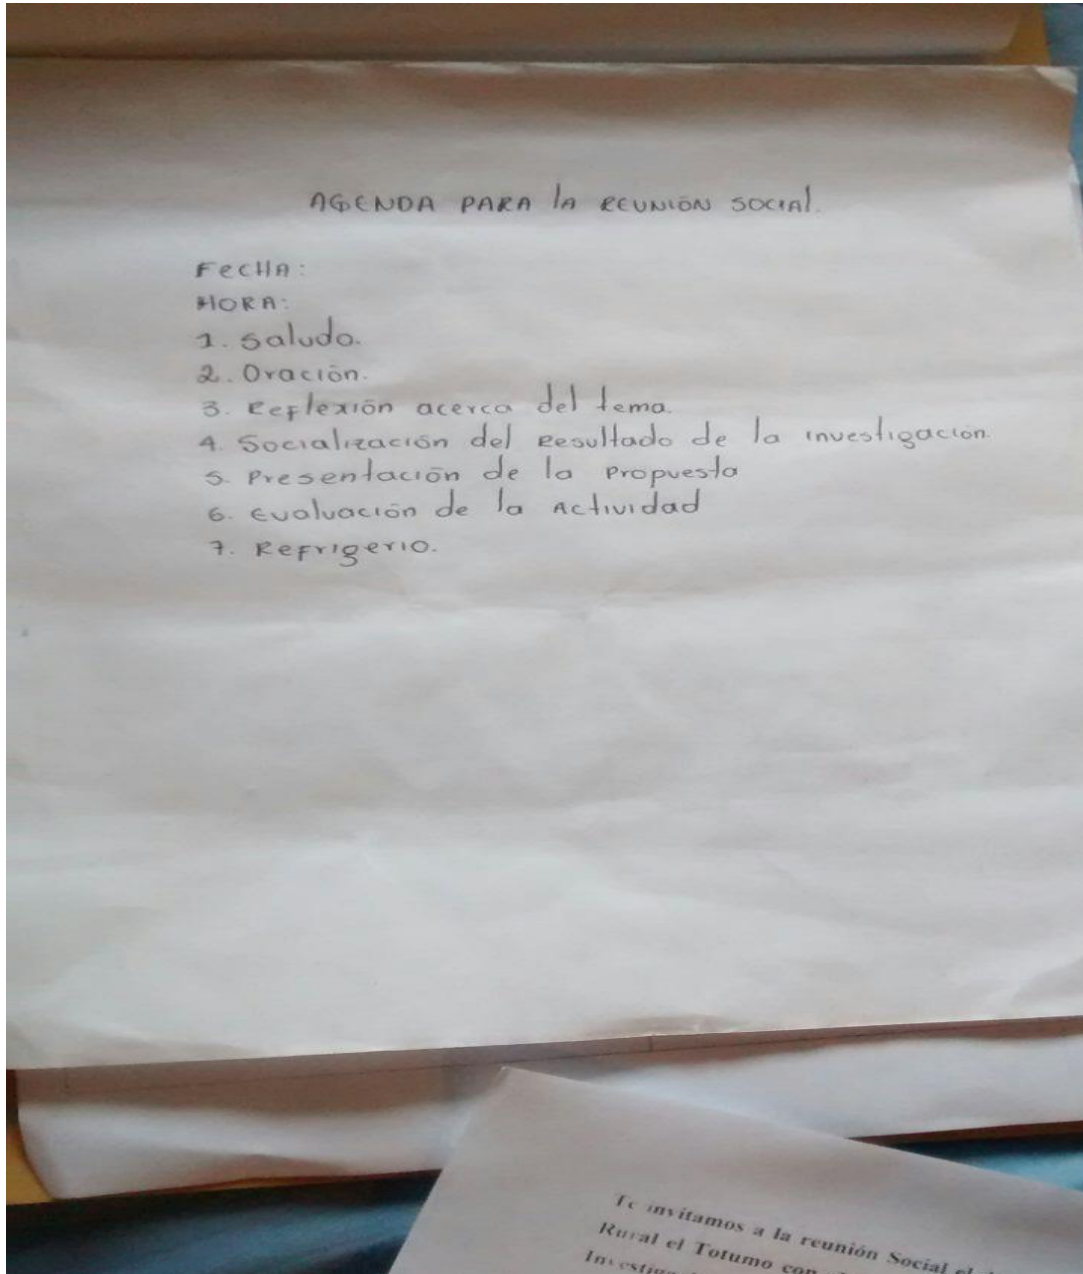 AGENDA PARA lA REUNIÓN SOCIAl.
FecHA:
HORA:
1. Saludo.
2. Oración.
3. Reflexión acerca del tema.
4. Socialización del Resultado de la investigación.
5. Presentación de la Propuesta
6. Evaluación de la Actividad
7. Refrigerio.
Te invitamos a la reunión Social el
Rural el Totumo con